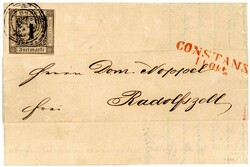 Freimarke
CONSTANZ
Herrn Dom. Noppel
frei
Radolfszell